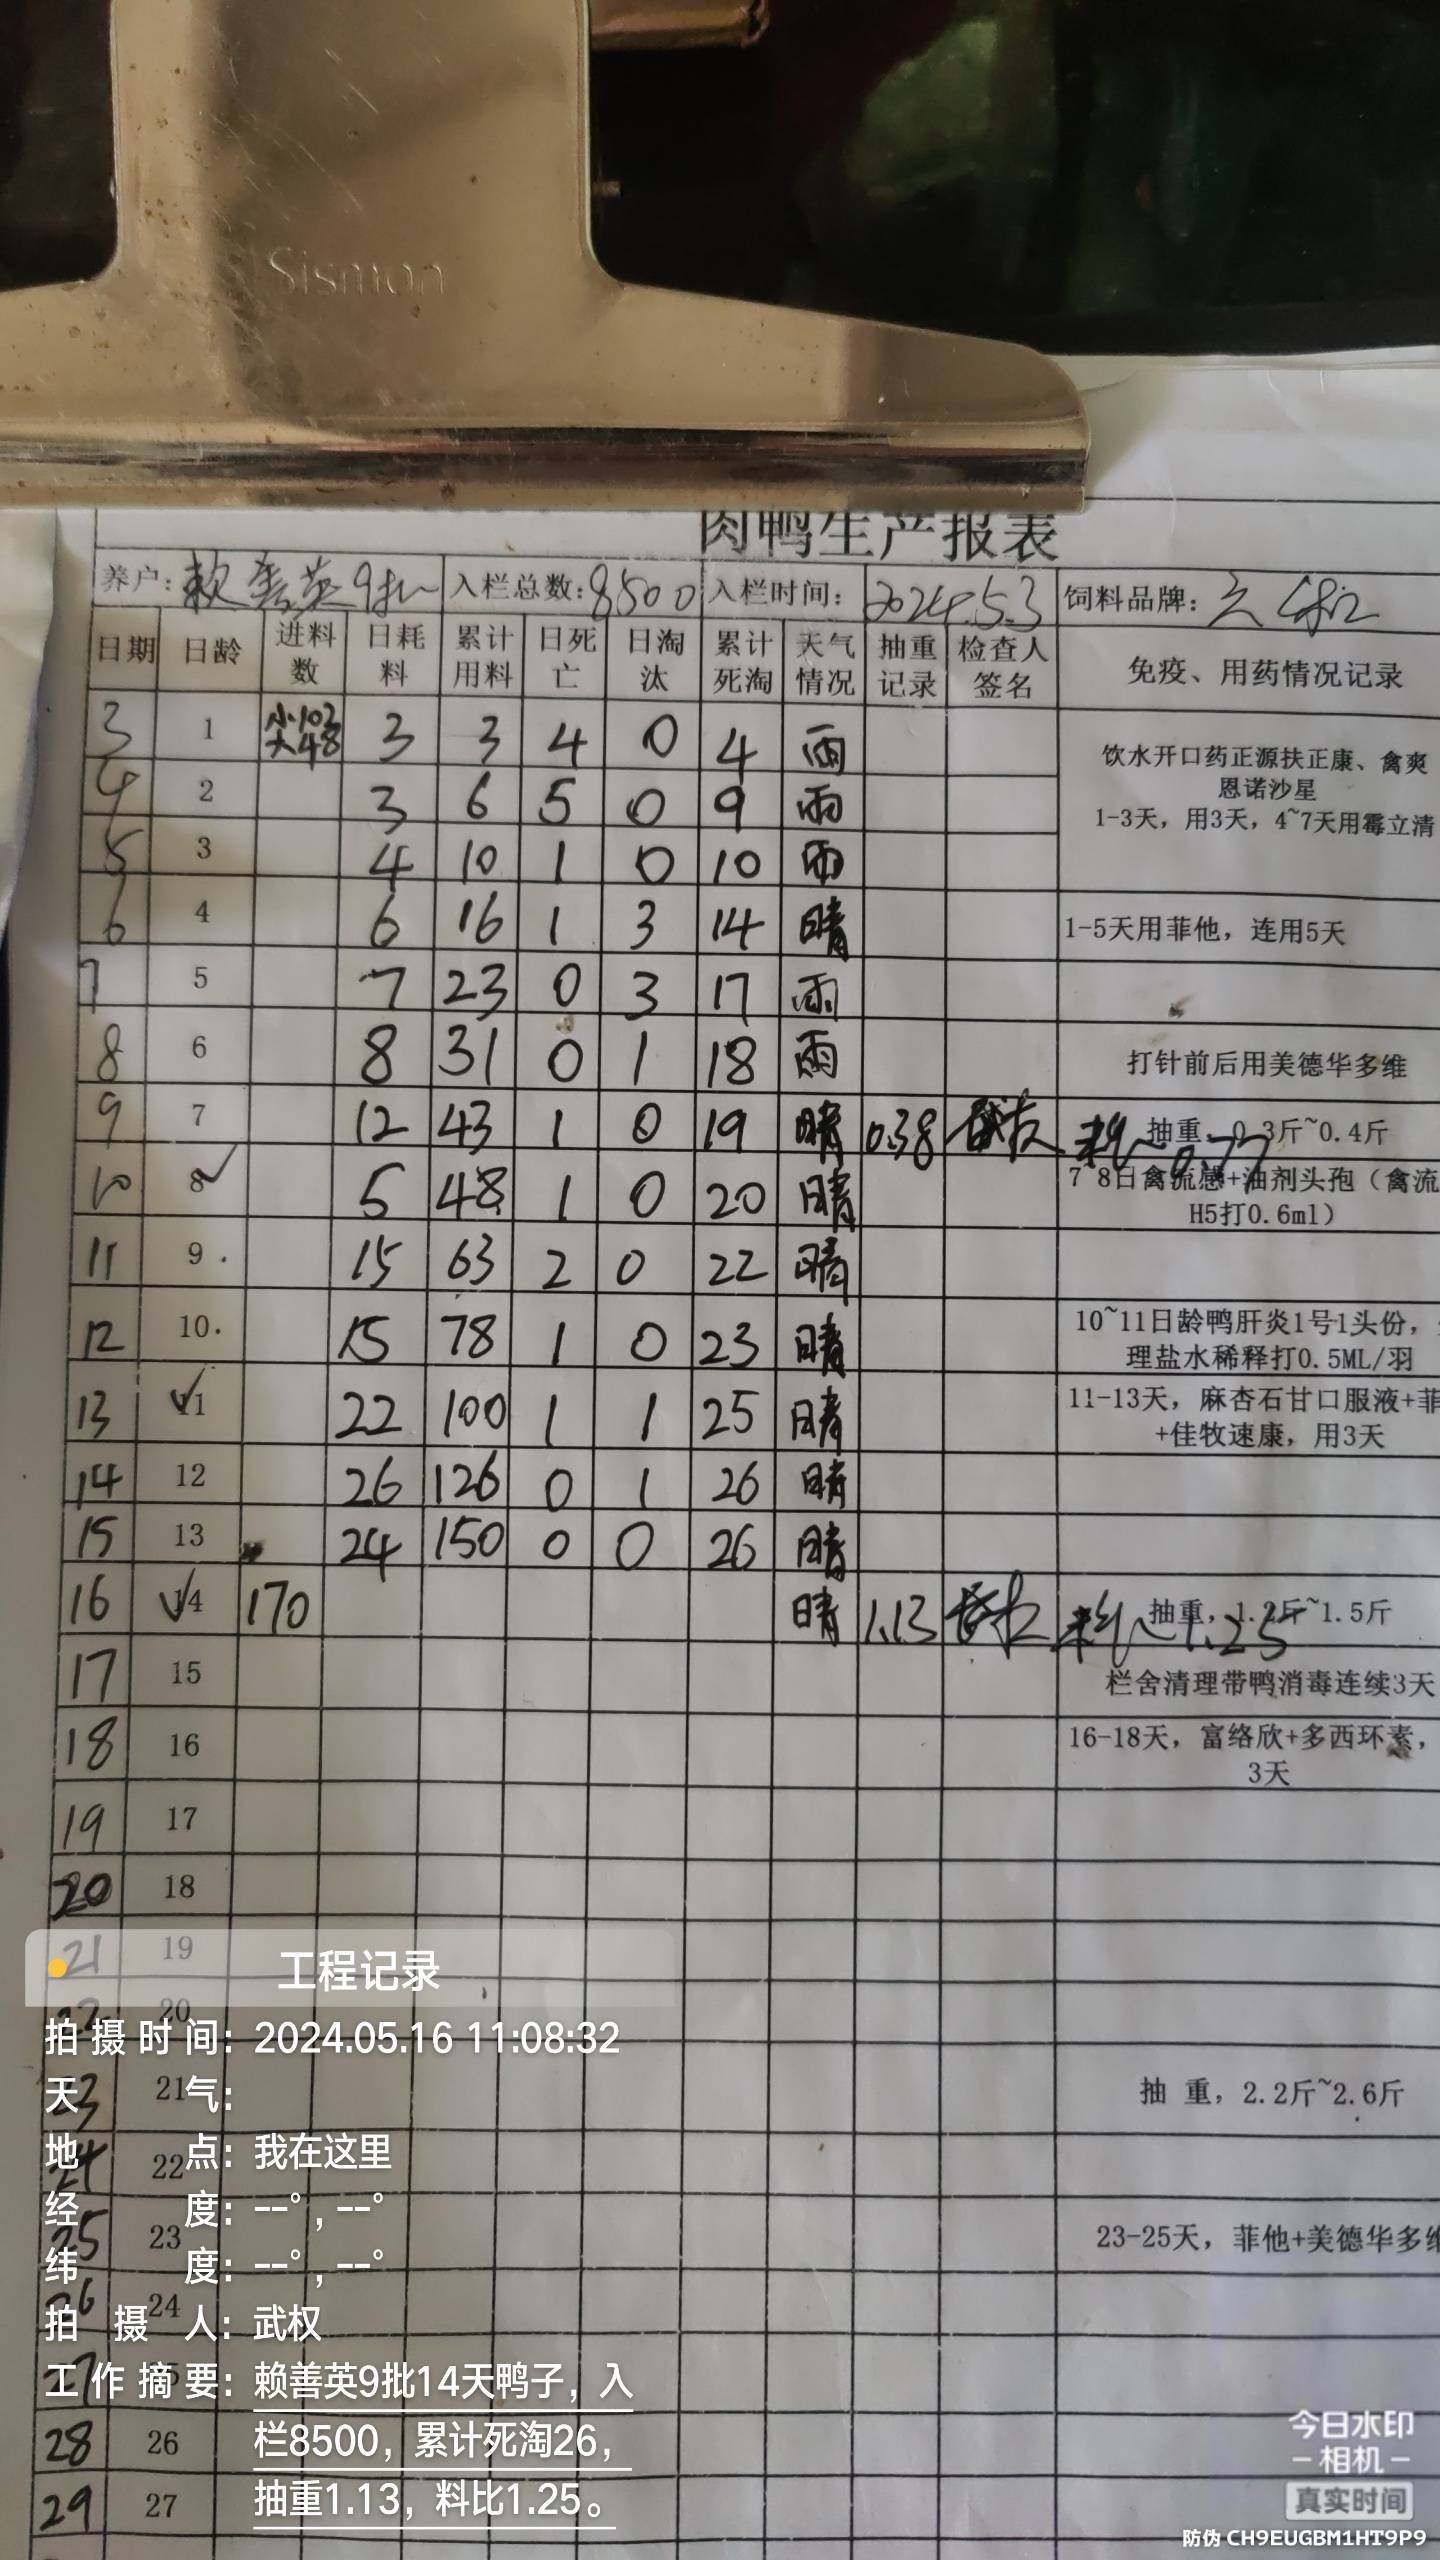 Sismon
肉鸭生产报表
养户: 赖善英9批 入栏总数: 8500 入栏时间: 2024.5.3 饲料品牌:
日期 日龄 进料数 日耗料 累计用料 日死亡 日淘汰 累计死淘 天气情况 抽重记录 检查人签名 免疫、用药情况记录
3 1 小103 大48 3 3 4 0 4 雨
饮水开口药正源扶正康、禽爽
恩诺沙星
1-3天，用3天，4~7天用霉立清
4 2 3 6 5 0 9 雨
5 3 4 10 1 0 10 雨
6 4 6 16 1 3 14 晴 1-5天用菲他，连用5天
7 5 7 23 0 3 17 雨
8 6 8 31 0 1 18 雨 打针前后用美德华多维
9 7 12 43 1 0 19 晴 0.38 料比 0.77 抽重，0.3斤~0.4斤
10 8 ✓ 5 48 1 0 20 晴 7 8日禽流感+油剂头孢（禽流
H5打0.6ml）
11 9 15 63 2 0 22 晴
12 10 15 78 1 0 23 晴 10~11日龄鸭肝炎1号1头份，
理盐水稀释打0.5ML/羽
13 11 ✓ 22 100 1 1 25 晴 11-13天，麻杏石甘口服液+菲
+佳牧速康，用3天
14 12 26 126 0 1 26 晴
15 13 24 150 0 0 26 晴
16 14 ✓ 170 晴 1.13 料比 1.25 抽重，1.2斤~1.5斤
17 15 栏舍清理带鸭消毒连续3天
18 16 16-18天，富络欣+多西环素，
3天
19 17
20 18
21 19
22 20
23 21 抽 重，2.2斤~2.6斤
24 22
25 23 23-25天，菲他+美德华多维
26 24
27 25
28 26
29 27
工程记录
拍摄时间: 2024.05.16 11:08:32
天气:
地点: 我在这里
经度: --°, --°
纬度: --°, --°
拍摄人: 武权
工作摘要: 赖善英9批14天鸭子，入
栏8500，累计死淘26，
抽重1.13，料比1.25。
今日水印
-相机-
真实时间
防伪 CH9EUGBM1HT9P9